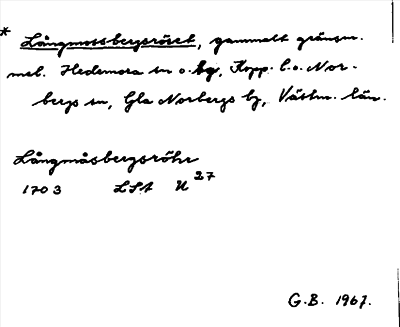 * Långmossbergsröset, gammalt gränsm.
mel. Hedemora sn o. bg, Kopp. l. o. Nor-
bergs sn, Gla Norbergs bg, Västm. län.
Långmåsbergsröhr
1703 LSA U 27
G.B. 1967.